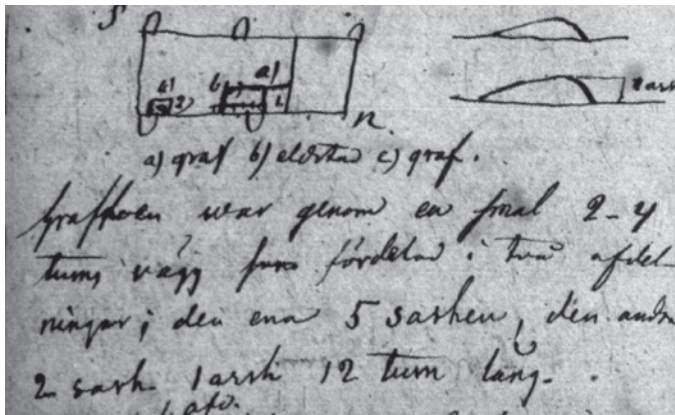 a) graf b) eldstad c) graf.
grafkoen war genom en smal 2-4
tums vägg fördelad i två afdel-
ningar; den ena 5 sashen, den andra
2 sash. 1 arsh 12 tum lång.